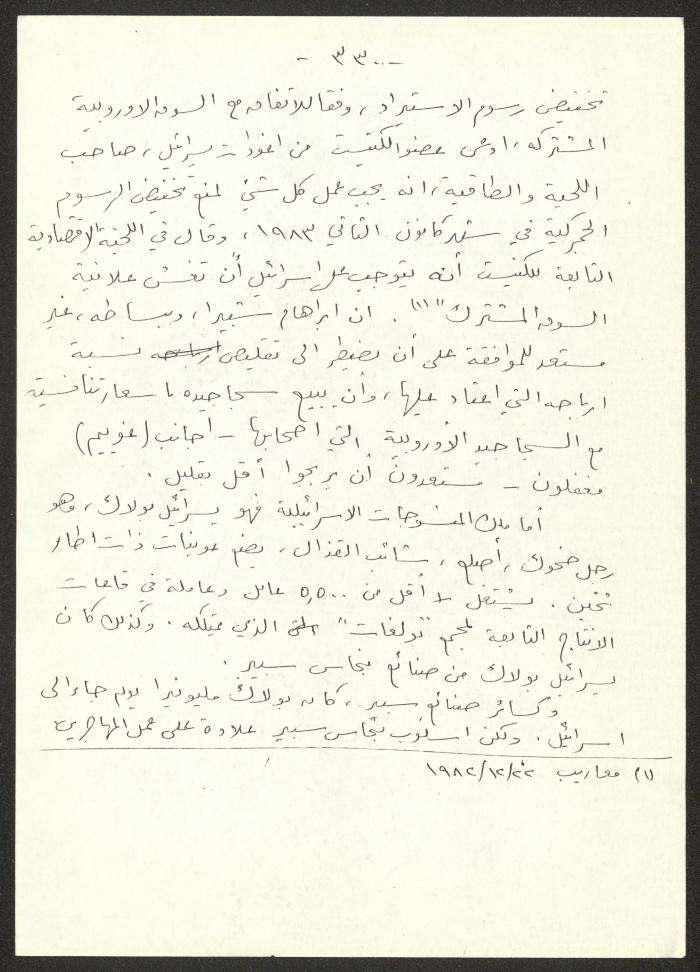 - ٣٣٠٠ -
تخفيض رسوم الاستيراد، وفقا للاتفاق مع السوق الاوروبية
المشتركة، اوصى عضو الكنيست من اغودات يسرائيل، صاحب
اللحية والطاقية، انه يجب عمل كل شئ لمنع تخفيض الرسوم
الجمركية في شهر كانون الثاني ١٩٨٣، وقال في اللجنة الاقتصادية
التابعة للكنيست أنه يتوجب على اسرائيل أن تغش علانية
السوق المشترك" (١). ان ابراهام شبيرا، وببساطة، غير
مستعد للموافقة على أن يضطر الى تقليص نسبة
ارباحه التي اعتاد عليها، وأن يبيع سجاجيده باسعار تنافسية
مع السجاجيد الأوروبية التي اصحابها - اجانب (غوييم)
مغفلون - مستعدون أن يربحوا أقل بقليل.
أما ملك المنسوجات الاسرائيلية فهو يسرائيل بولاك، وهو
رجل ضحوك، أصلع، شائب القذال، يضع عوينات ذات اطار
ثخين. يشتغل لا أقل من ٥,٥٠٠ عامل وعاملة في قاعات
الانتاج التابعة لمجمع "بولغات" الذي يمتلكه. وكذلك كان
يسرائيل بولاك من صنائع بنحاس سبير.
وكسائر صنائع سبير، كان بولاك مليونيرا يوم جاء الى
اسرائيل. ولكن اسلوب بنحاس سبير علاوة على عمل المهاجرين
(١) معاريب ١٩٨٢/١٢/٢٢